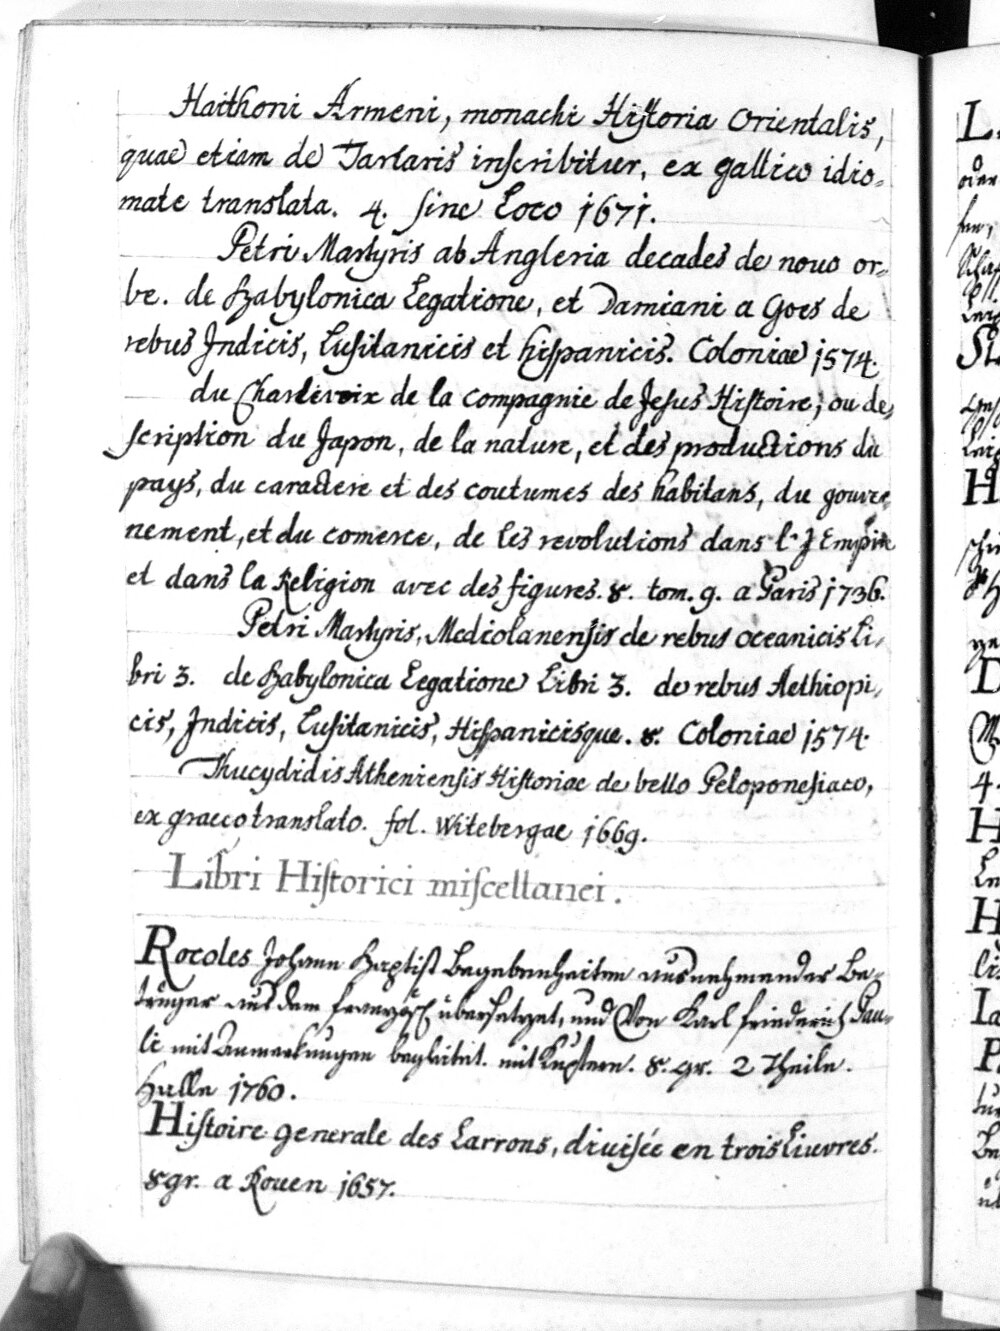 Haithoni Armeni, monachi Historia Orientalis,
quae etiam de Tartaris inscribitur, ex gallico idio-
mate translata. 4. sine Loco 1671.
Petri Martyris ab Angleria decades de nouo or-
be. de Babylonica Legatione, et Damiani a Goes de
rebus Indicis, Lusitanicis et hispanicis. Coloniae 1574.
du Charlevoix de la compagnie de Jesus Histoire, ou de-
scription du Japon, de la nature, et des productions du
pays, du caractere et des coutumes des habitans, du gouver-
nement, et du comerce, de les revolutions dans l'Empire
et dans la Religion avec des figures. 8. tom. 9. a Paris 1736.
Petri Martyris, Mediolanensis de rebus oceanicis Li-
bri 3. de Babylonica Legatione Libri 3. de rebus Aethiopi-
cis, Indicis, Lusitanicis, Hispanicisque. 8. Coloniae 1574.
Thucydidis Atheniensis Historiae de bello Peloponesiaco,
ex graeco translato. fol. Witebergae 1669.
Libri Historici miscellanei.
Rocoles Johann Baptist Begebenheiten ausnehmender Be-
trüger aus dem französ. übersetzet, und Von Karl friederich Pau-
li mit Anmerkungen begleitet. mit Kupfern. 8. gr. 2 Theile.
Halle 1760.
Histoire generale des Larrons, divisée en trois Liuvres.
8 gr. a Rouen 1657.